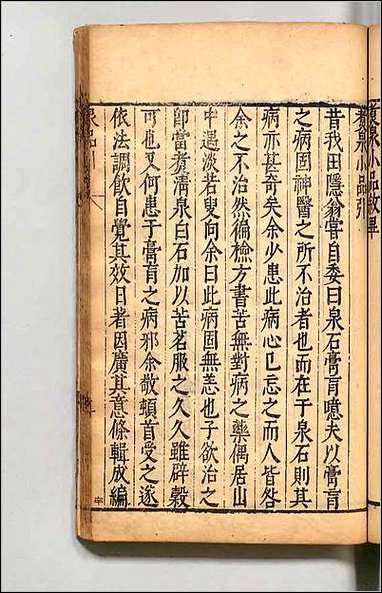 煮泉小品引
昔我田隱翁嘗自委曰泉石膏肓噫夫以膏肓
之病固神醫之所不治者也而在于泉石則其
病亦甚奇矣余少患此病心已忘之而人皆咎
余之不治然徧檢方書苦無對病之藥偶居山
中遇淡若叟向余曰此病固無恙也子欲治之
即當煮清泉白石加以苦茗服之久久雖辟穀
可也又何患于膏肓之病邪余敬頓首受之遂
依法調飲自覺其效日著因廣其意條輯成編